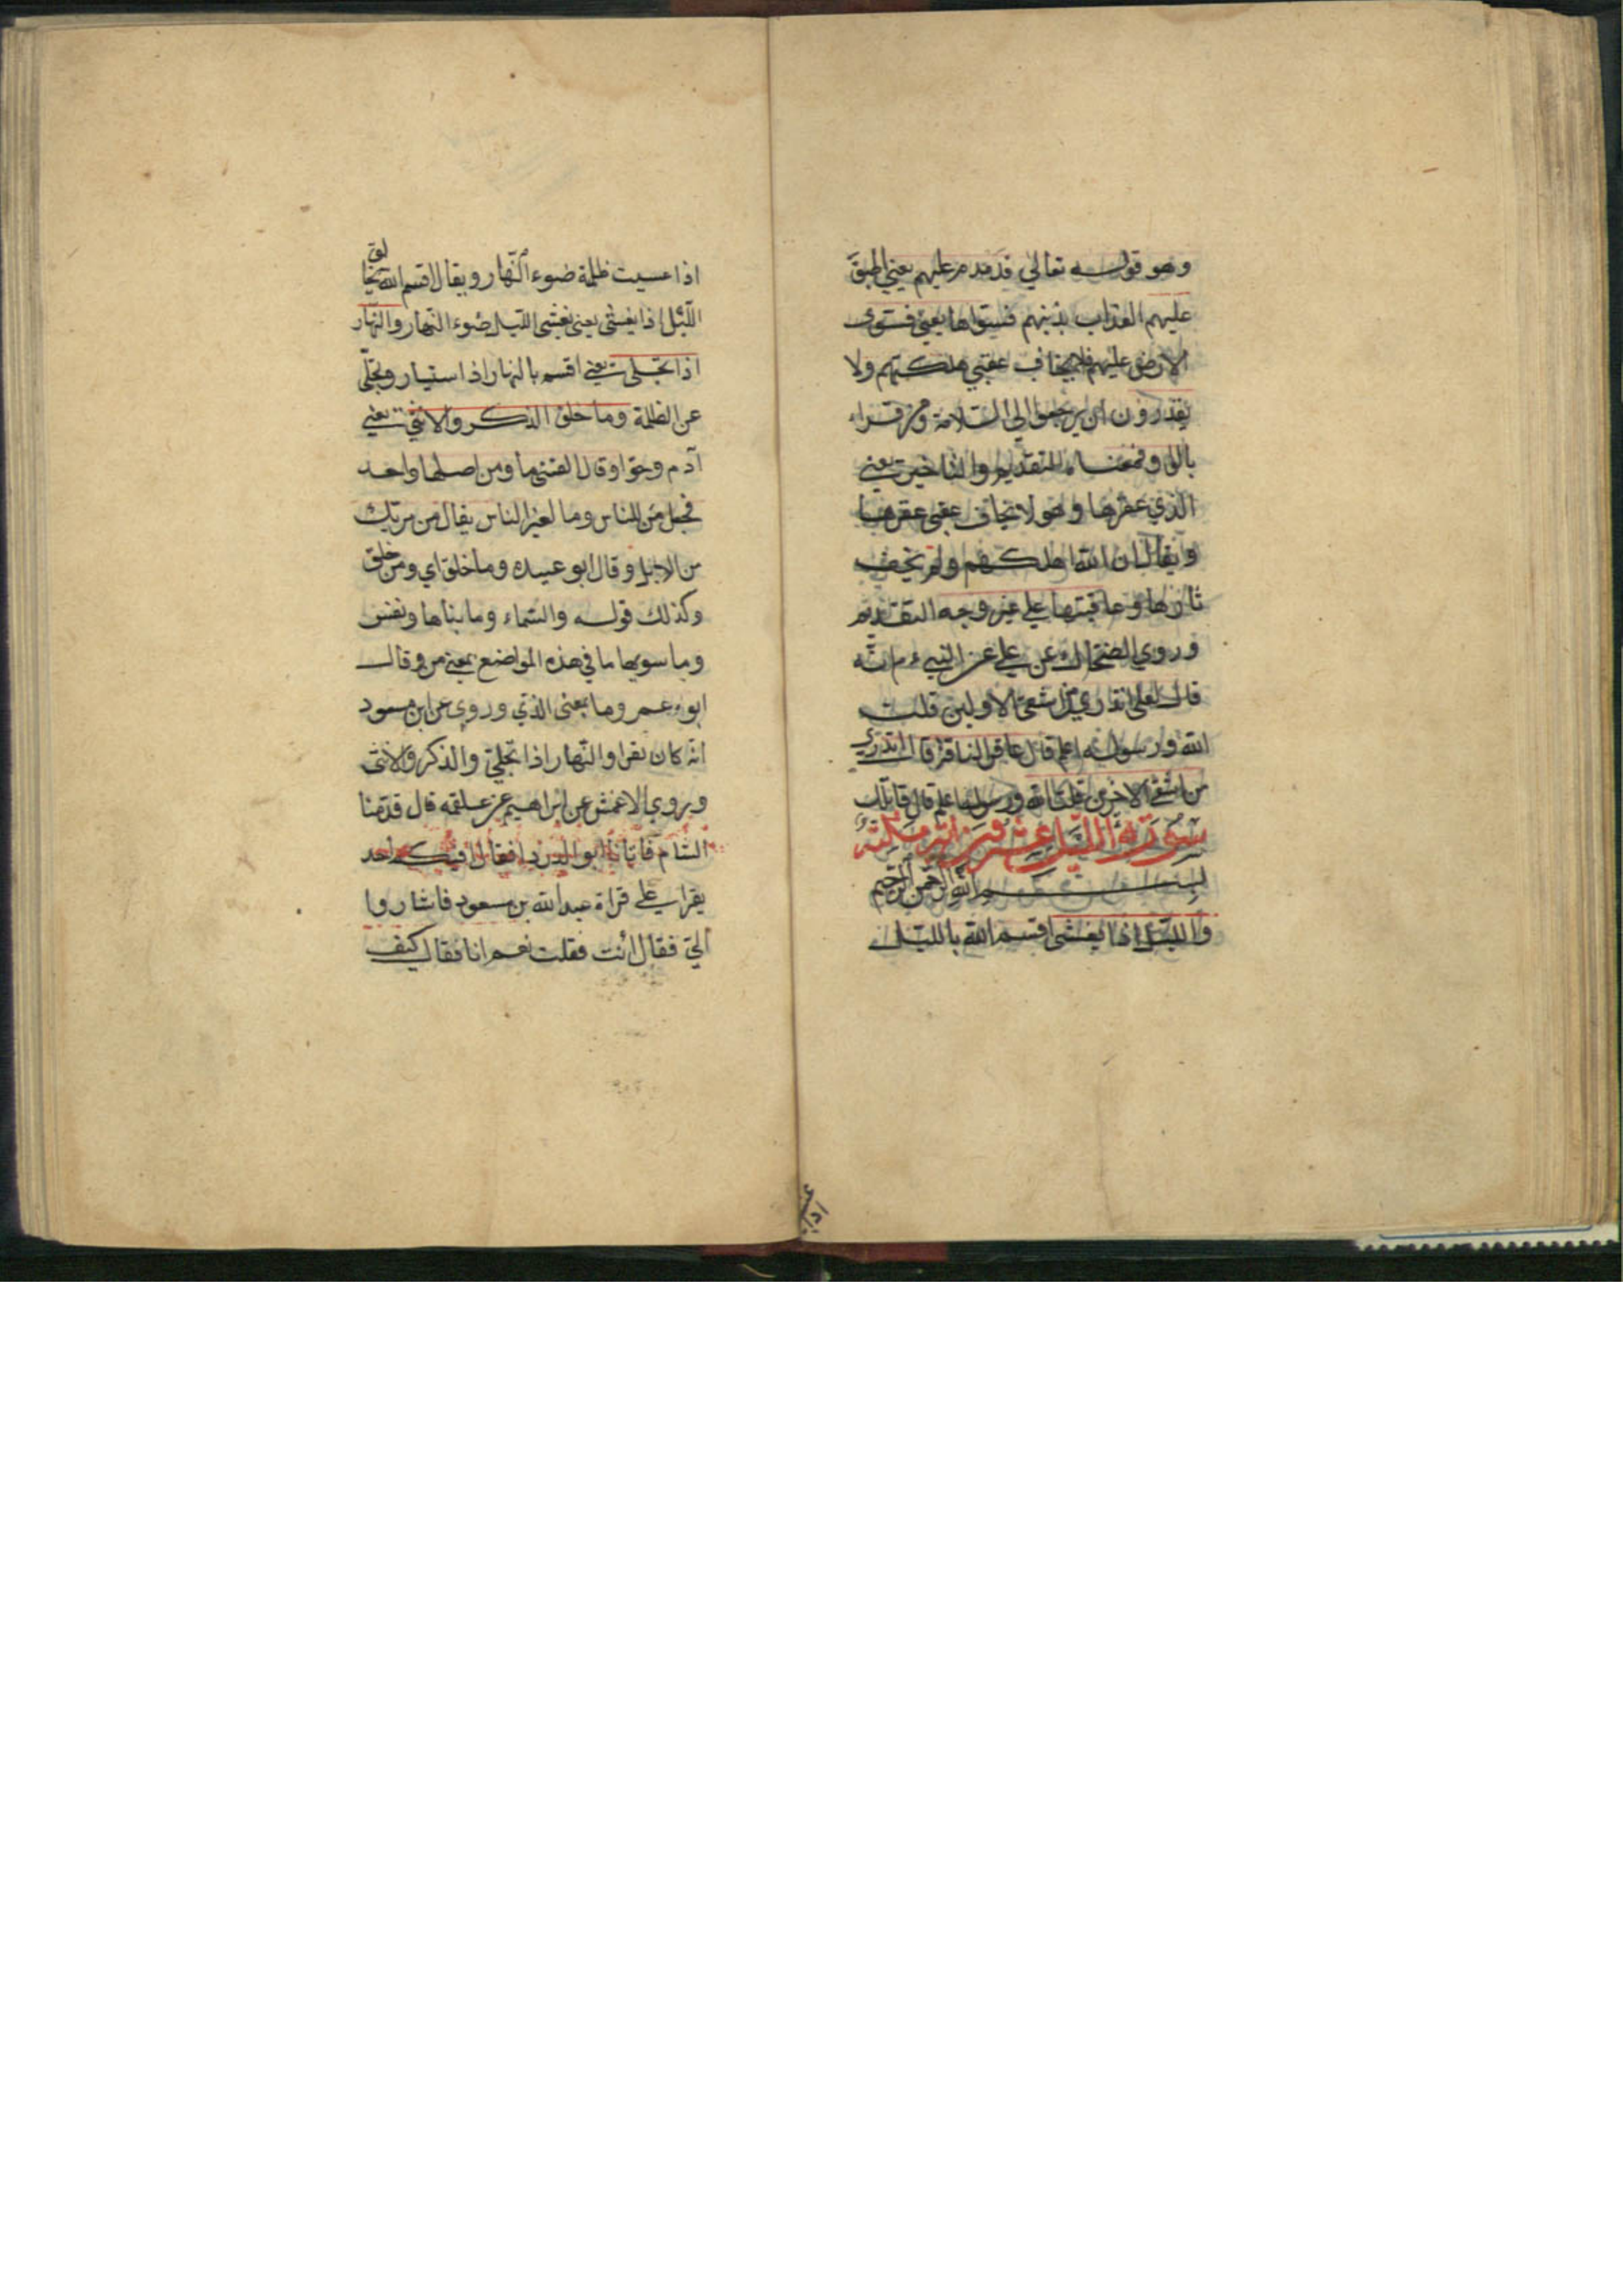 وهو قوله تعالي فدمدم عليهم يعني اطبق
عليهم العذاب بذنبهم فسواها يعني فسوي
الارض عليهم فلا يخاف عقبي هلكتهم ولا
يقدرون ان يرجعوا الي السلامة ومن قراء
بالواو فمعناه التقديم والتاخير يعني
الذي عقرها وهو لا يخاف عقبي عقرها
ويقال ان الله اهلكهم ولم يخف
ثارها وعاقبتها علي غير وجه التقديم
وروي الضحاك عن علي عن النبي ءم انه
قال لعلي اتدري من اشقي الاولين قلت
الله ورسوله اعلم قال عاقر الناقة قال اتدري
من اشقي الاخرين قلت الله ورسوله اعلم قال قاتلك
سورة الليل عشرون اية مكية
بسم الله الرحمن الرحيم
والليل اذا يغشي اقسم الله بالليل
اذا عسيت ظلمة ضوء النهار ويقال اقسم الله بخالق
الليل اذا يغشي يعني يغشي الليل ضوء النهار والنهار
اذا تجلي يعني اقسم بالنهار اذا استنار وتجلي
عن الظلمة وما خلق الذكر والانثي يعني
آدم وحوا وقال القتبي ما ومن اصلها واحد
فجعل من للناس وما لغير الناس يقال من مر بك
من الابل وقال ابو عبيده وما خلق اي ومن خلق
وكذلك قوله والسماء وما بناها ونفس
وما سويها ما في هذه المواضع بمعني من وقال
ابو عمر وما بمعني الذي وروي عن ابن مسعود
انه كان يقرا والنهار اذا تجلي والذكر والانثي
وروي الاعمش عن ابراهيم عن علقمه قال قدمنا
الشام فاتانا ابو الدردا فقال افيكم احد
يقرا علي قراة عبد الله بن مسعود فاشاروا
الي فقال انت فقلت نعم انا فقال كيف